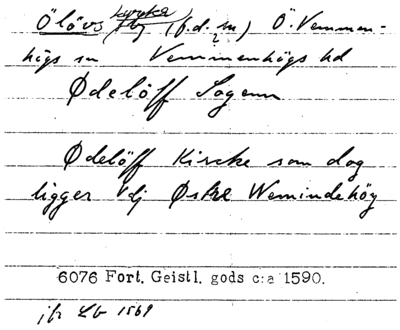 Ölövs kyrka by (f.d. sn) Ö. Vemmen-
högs sn Vemmenhögs hd
Ødelöff Sogenn
Ødelöff Kircke som dog
ligger vdj Østre Wemindehög
6076 Fort. Geistl. gods c:a 1590.
jfr Lb 1569